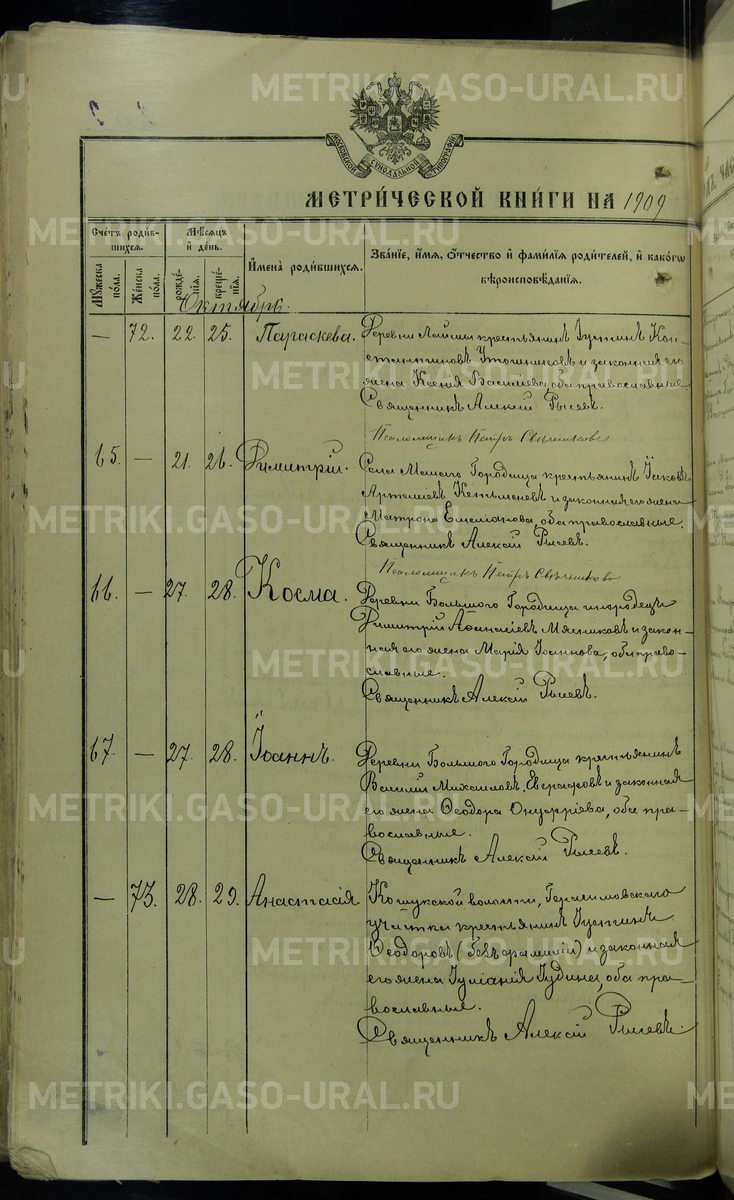 METRIKI.GASO-URAL.RU
МОСКОВСКОЙ СѴНОДАЛЬНОЙ ТИПОГРАФІИ
МЕТРИ́ЧЕСКОЙ КНИ́ГИ НА 1909
Сче́тъ роди́вшихся.
Мꙋ́жеска по́ла.
Же́нска по́ла.
Мѣ́сяцъ и҆ де́нь.
рожде́нїя.
креще́нїя.
И҆мена̀ роди́вшихся.
Зва́нїе, и҆́мя, ѻ҆́тчество и҆ фами́лїя роди́телей, и҆ како́гѡ вѣроисповѣ́данїя.
Октябрь.
— 72. 22. 25. Параскева. Деревни крестьянинъ Іустинъ Кон-
стантиновъ и законная его
жена Ксенія Василіева, оба православные
Священникъ Алексій
Псаломщикъ Петръ Свѣчниковъ
65. — 21. 26. Димитрій. Села Малаго Городища крестьянинъ Іаковъ
Артеміевъ и законная его жена
Матрона Емеліанова, оба православные.
Священникъ Алексій
Псаломщикъ Петръ Свѣчниковъ
66. — 27. 28. Косма. Деревни Большого Городища инородецъ
Димитрій Аѳанасіевъ Мясниковъ и закон-
ная его жена Марія Іоаннова, оба право-
славные.
Священникъ Алексій
67. — 27. 28. Іоаннъ. Деревни Большого Городища крестьянинъ
Василій Михаиловъ Евграфовъ и законная
его жена Ѳеодора Онуфріева, оба пра-
вославные.
Священникъ Алексій
— 73. 28. 29. Анастасія Кошукской волости, Герасимовскаго
участка крестьянинъ Іустинъ
Ѳеодоровъ (безъ фамиліи) и законная
его жена Іуліанія Іудина, оба пра-
вославные.
Священникъ Алексій